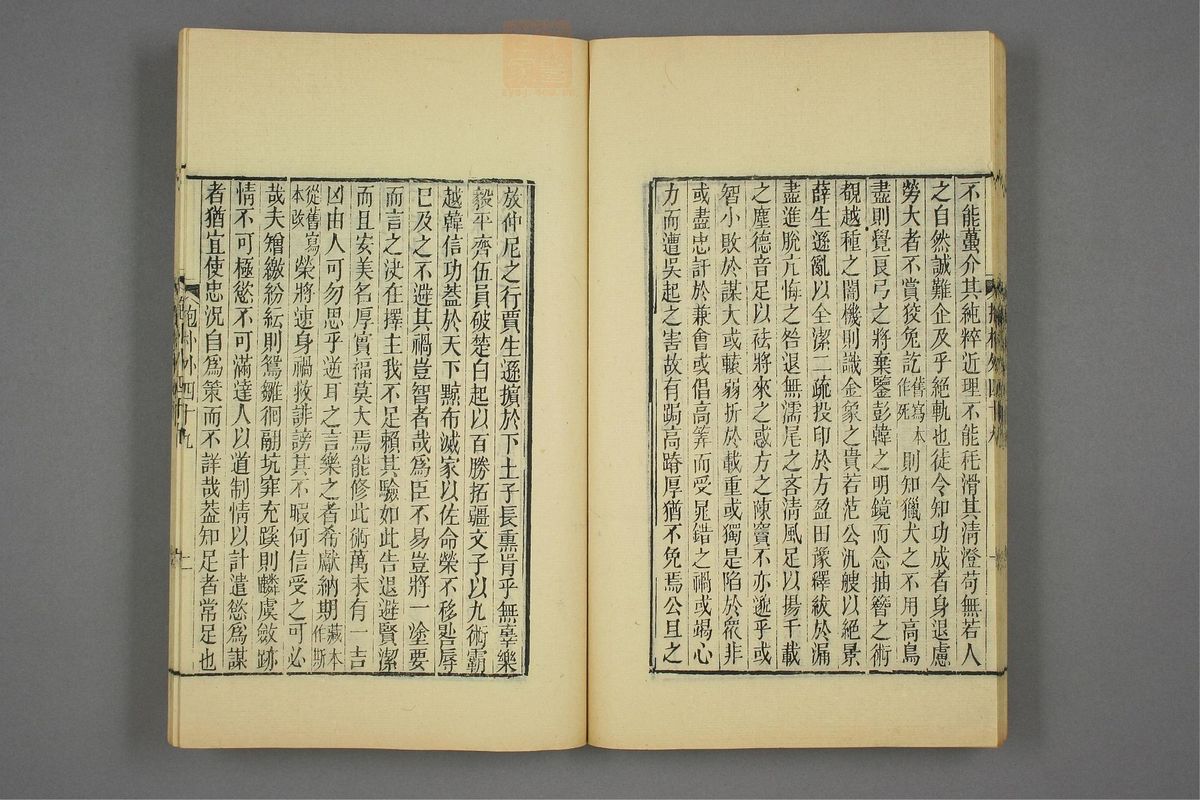 不能蠆介其純粹近理不能秏滑其清澄苟無若人
之自然誠難企及乎絕軌也徒令知功成者身退慮
勞大者不賞狡兔訖舊寫本作死則知獵犬之不用高鳥
盡則覺良弓之將棄鑒彭韓之明鏡而念抽簪之術
覩越種之闇機則識金象之貴若范公汎艘以絕景
薛生遜亂以全潔二疏投印於方盈田豫釋紱於漏
盡進脫亢悔之咎退無濡尾之吝清風足以揚千載
之塵德音足以祛將來之惑方之陳竇不亦邈乎或
智小敗於謀大或轅弱折於載重或獨是陷於衆非
或盡忠訐於兼會或倡高筭而受晁錯之禍或竭心
力而遭吳起之害故有跼高蹐厚猶不免焉公旦之
放仲尼之行賈生遜擯於下土子長熏胥乎無辜樂
毅平齊伍員破楚白起以百勝拓疆文子以九術霸
越韓信功蓋於天下黥布滅家以佐命榮不移晷辱
已及之不避其禍豈智者哉爲臣不易豈將一塗要
而言之決在擇主我不足賴其驗如此告退避賢潔
而且安美名厚實福莫大焉能修此術萬未有一吉
凶由人可勿思乎逆耳之言樂之者希獻納期藏本作斯
從舊寫本改榮將速身禍救誹謗其不暇何信受之可必
哉夫矰繳紛紜則鴛雛徊翮坑穽充蹊則麟虞斂跡
情不可極慾不可滿達人以道制情以計遣慾爲謀
者猶宜使忠況自爲策而不詳哉蓋知足者常足也
抱朴外四十九
二